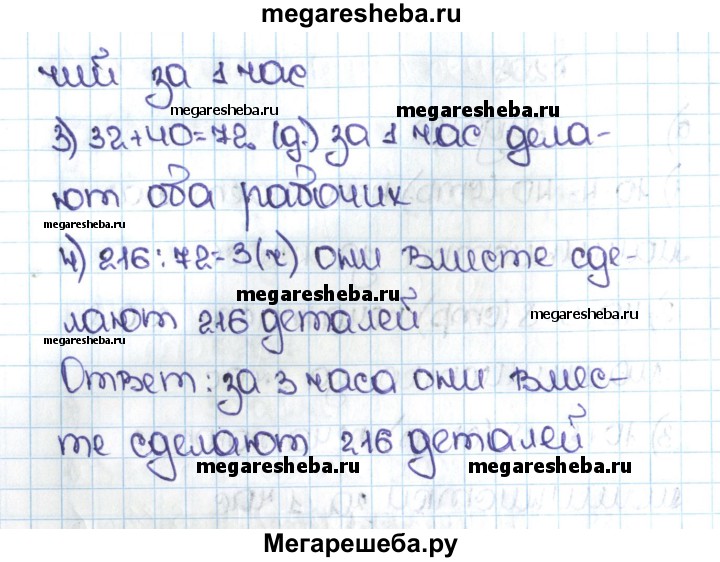 megaresheba.ru
чий за 1 час
megaresheba.ru megaresheba.ru
3) 32+40=72 (д.) за 1 час дела-
ют оба рабочих
megaresheba.ru
4) 216:72=3(ч) они вместе сде-
megaresheba.ru megaresheba.ru
лают 216 деталей
megaresheba.ru
Ответ: за 3 часа они вмес-
те сделают 216 деталей
megaresheba.ru megaresheba.ru
Мегарешеба.ру